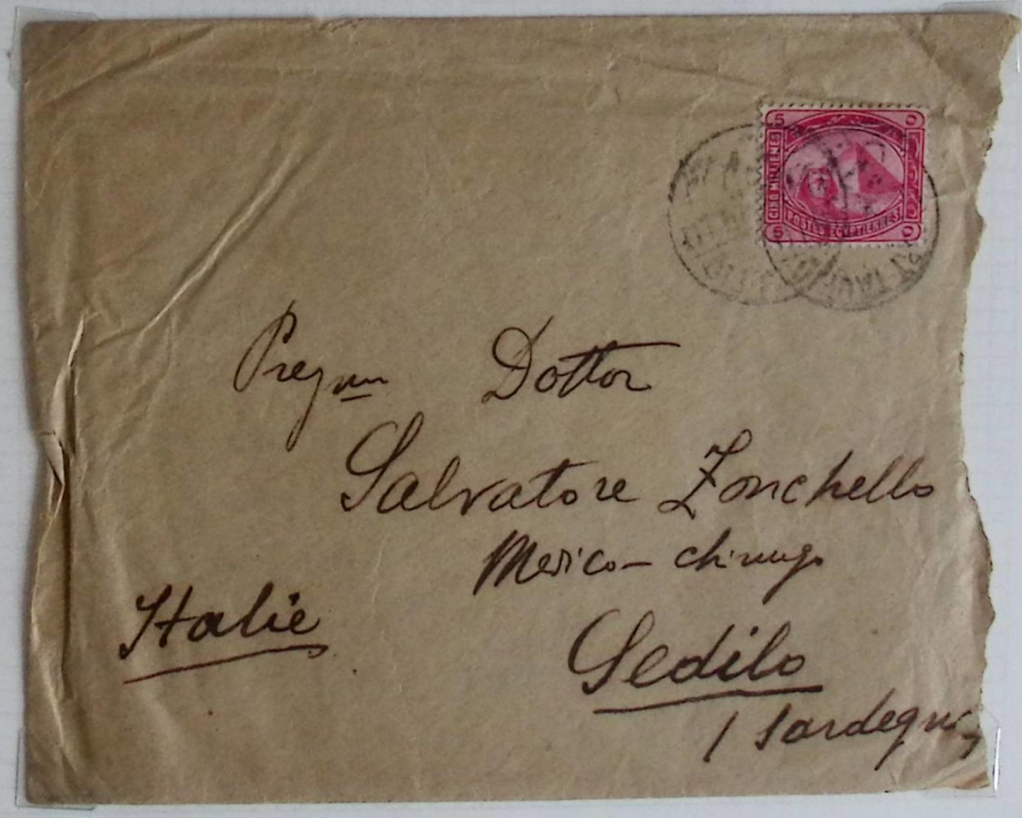 5
CINQ MILLIEMES
POSTES EGYPTIENNES
5
TAUF
Pregmo Dottor
Salvatore Zonchello
Medico - chirurgo
Italie
Sedilo
(Sardegna)